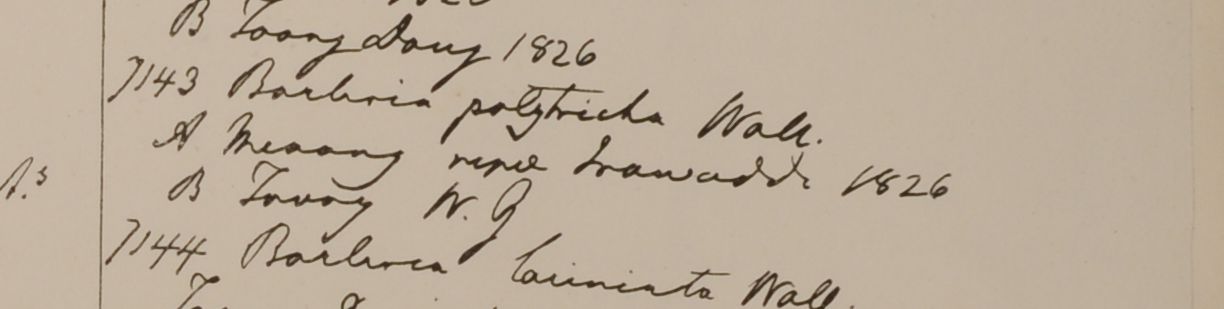 B Toong Dong 1826
7143 Barleria polytricha Wall.
A Meaong ripae Irawaddi 1826
B Tavoy W. G
7144 Barleria laciniata Wall.